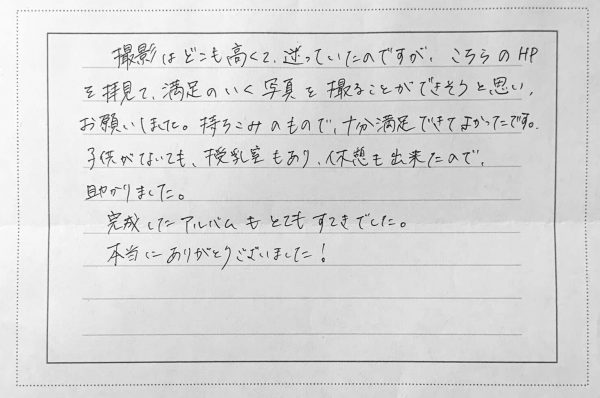 撮影はどこも高くて、迷っていたのですが、こちらのHP
を拝見て、満足のいく写真を撮ることができそうと思い、
お願いしました。持ちこみのもので、十分満足できてよかったです。
子供がないても、授乳室もあり、休憩も出来たので、
助かりました。
完成したアルバムもとてもすてきでした。
本当にありがとうございました!